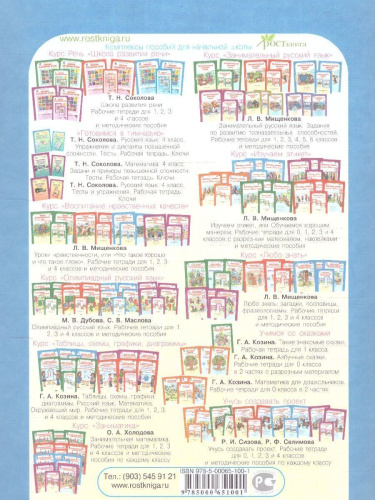 www.rostkniga.ru
Комплексы пособий для начальной школы
РОСТкнига
Курс Речь «Школа развития речи»
Т. Н. Соколова
Школа развития речи
Рабочие тетради для 1, 2, 3
и 4 классов
и методические пособия
«Готовимся в гимназию»
Т. Н. Соколова. Русский язык. 4 класс.
Упражнения и диктанты повышенной
сложности. Тесты. Рабочая тетрадь. Ключи
Т. Н. Соколова. Математика. 4 класс.
Задачи и примеры повышенной сложности.
Тесты. Рабочая тетрадь. Ключи
Т. Н. Соколова. Русский язык. 4 класс.
Тесты и упражнения. Рабочая тетрадь.
Ключи
Курс «Воспитание нравственных качеств»
Л. В. Мищенкова
Уроки нравственности, или «Что такое хорошо
и что такое плохо». Рабочие тетради для 1, 2, 3
и 4 классов и методические пособия
Курс «Олимпиадный русский язык»
М. В. Дубова, С. В. Маслова
Олимпиадный русский язык. Рабочие тетради для 1
2, 3 и 4 классов и методические пособия
Курс «Таблицы, схемы, графики, диаграммы»
Г. А. Козина. Таблицы, схемы, графики,
диаграммы. Русский язык. Математика.
Окружающий мир. Рабочие тетради для 1, 2, 3
и 4 классов и методические пособия
Курс «Заниматика»
О. А. Холодова
Занимательная математика.
Рабочие тетради для 0, 1, 2, 3
и 4 классов и методические
пособия по каждому классу
Тел.: (903) 545 91 21
rostkniga.ru
Курс «Занимательный русский язык»
Л. В. Мищенкова
Занимательный русский язык. Задания
по развитию познавательных способностей.
Рабочие тетради для 1, 2, 3, 4, 5, 6 классов
и методические пособия
Курс «Изучаем этикет»
Л. В. Мищенкова
Изучаем этикет, или Обучаемся хорошим
манерам. Рабочие тетради для 0, 1, 2, 3 и 4
классов с разрезным материалом, наклейками
и методические пособия
Курс «Любознать»
Л. В. Мищенкова
Любознать: загадки, пословицы,
фразеологизмы. Рабочие тетради
для 1, 2, 3 и 4 класса
и методические пособия
Учимся со сказками
Г. А. Козина. Такие знакомые сказки.
Рабочая тетрадь для 1 класса
Г. А. Козина. Азбучные сказки.
Рабочие тетради для 0 класса
в 2 части с разрезным материалом
Г. А. Козина. Математика для дошкольников.
Рабочие тетради для 0 класса
Учусь создавать проект
Р. И. Сизова, Р. Ф. Селимова
Учусь создавать проект. Рабочие тетради
для 1, 2, 3 и 4 классов
и методические пособия по каждому классу
ISBN 978-5-00065-100-1
9 785000 651001